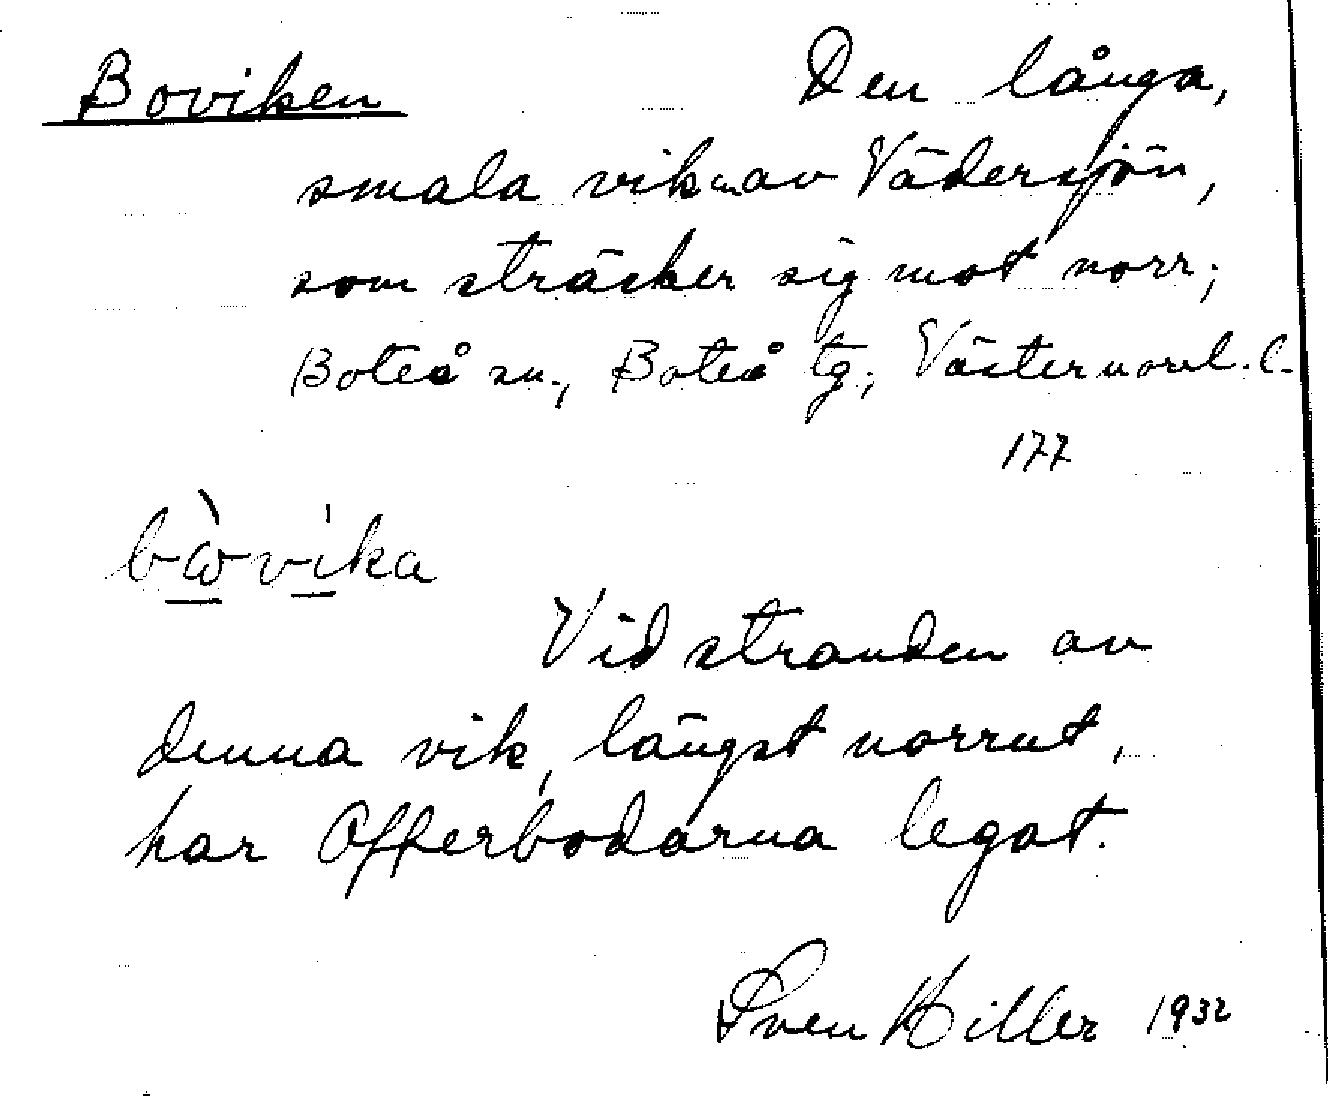 Boviken Den långa,
smala viken av Vädersjön,
som sträcker sig mot norr;
Boteå sn., Boteå tg., Västernorrl. l.
177
bòvika
Vid stranden av
denna vik, längst norrut,
har Offerbodarna legat.
Sven Hiller 1932